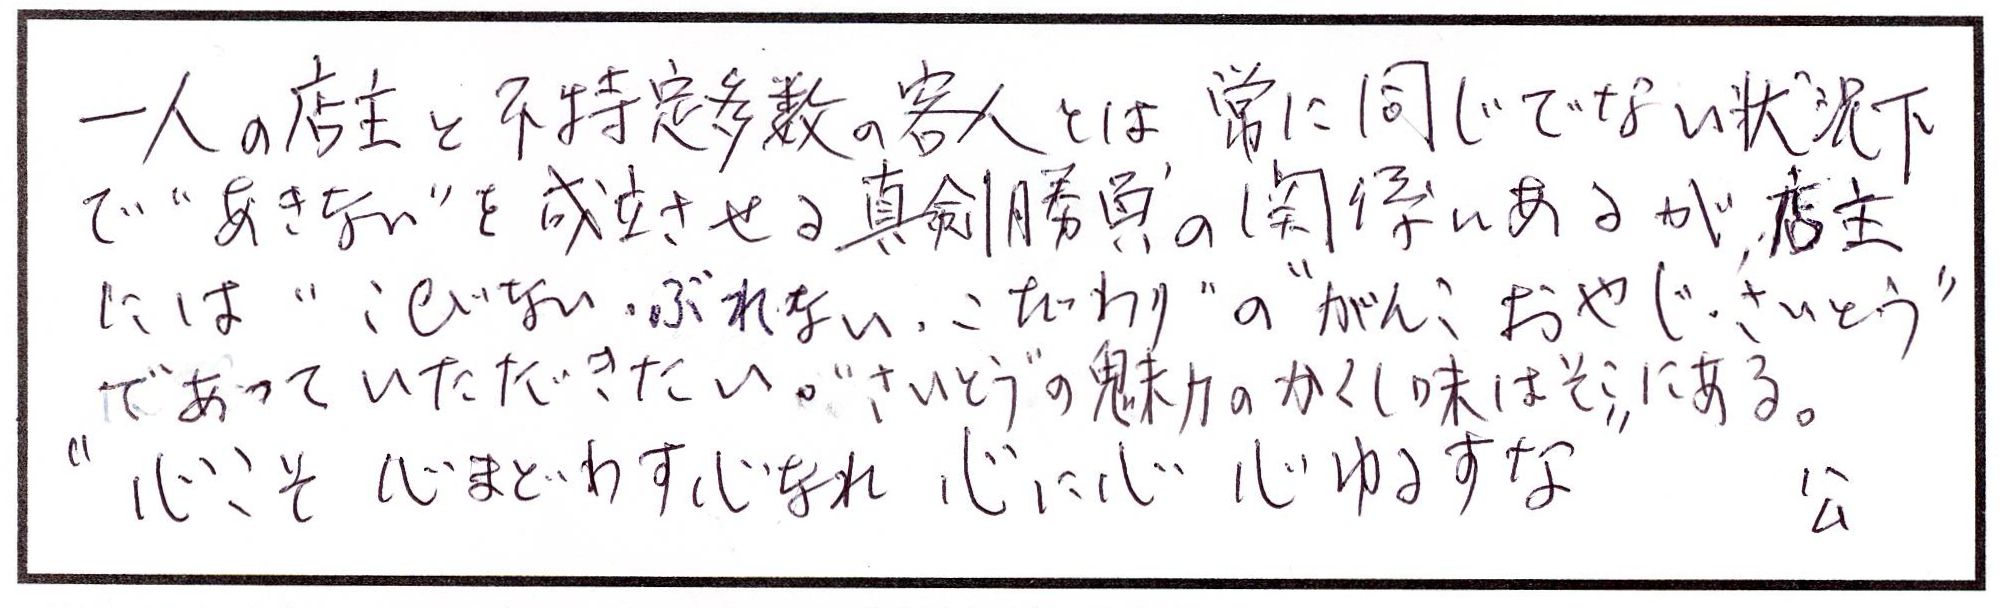 一人の店主と不特定多数の客人とは 常に同じでない状況下
で“あきない”を成立させる真剣勝負の関係にあるが、店主
には“こびない・ぶれない・こだわり”の“がんこおやじ・さいとう”
であっていただきたい。“さいとう”の魅力のかくし味は“そこ”にある。
“心こそ 心まどわす心なれ 心に心 心ゆるすな” 公